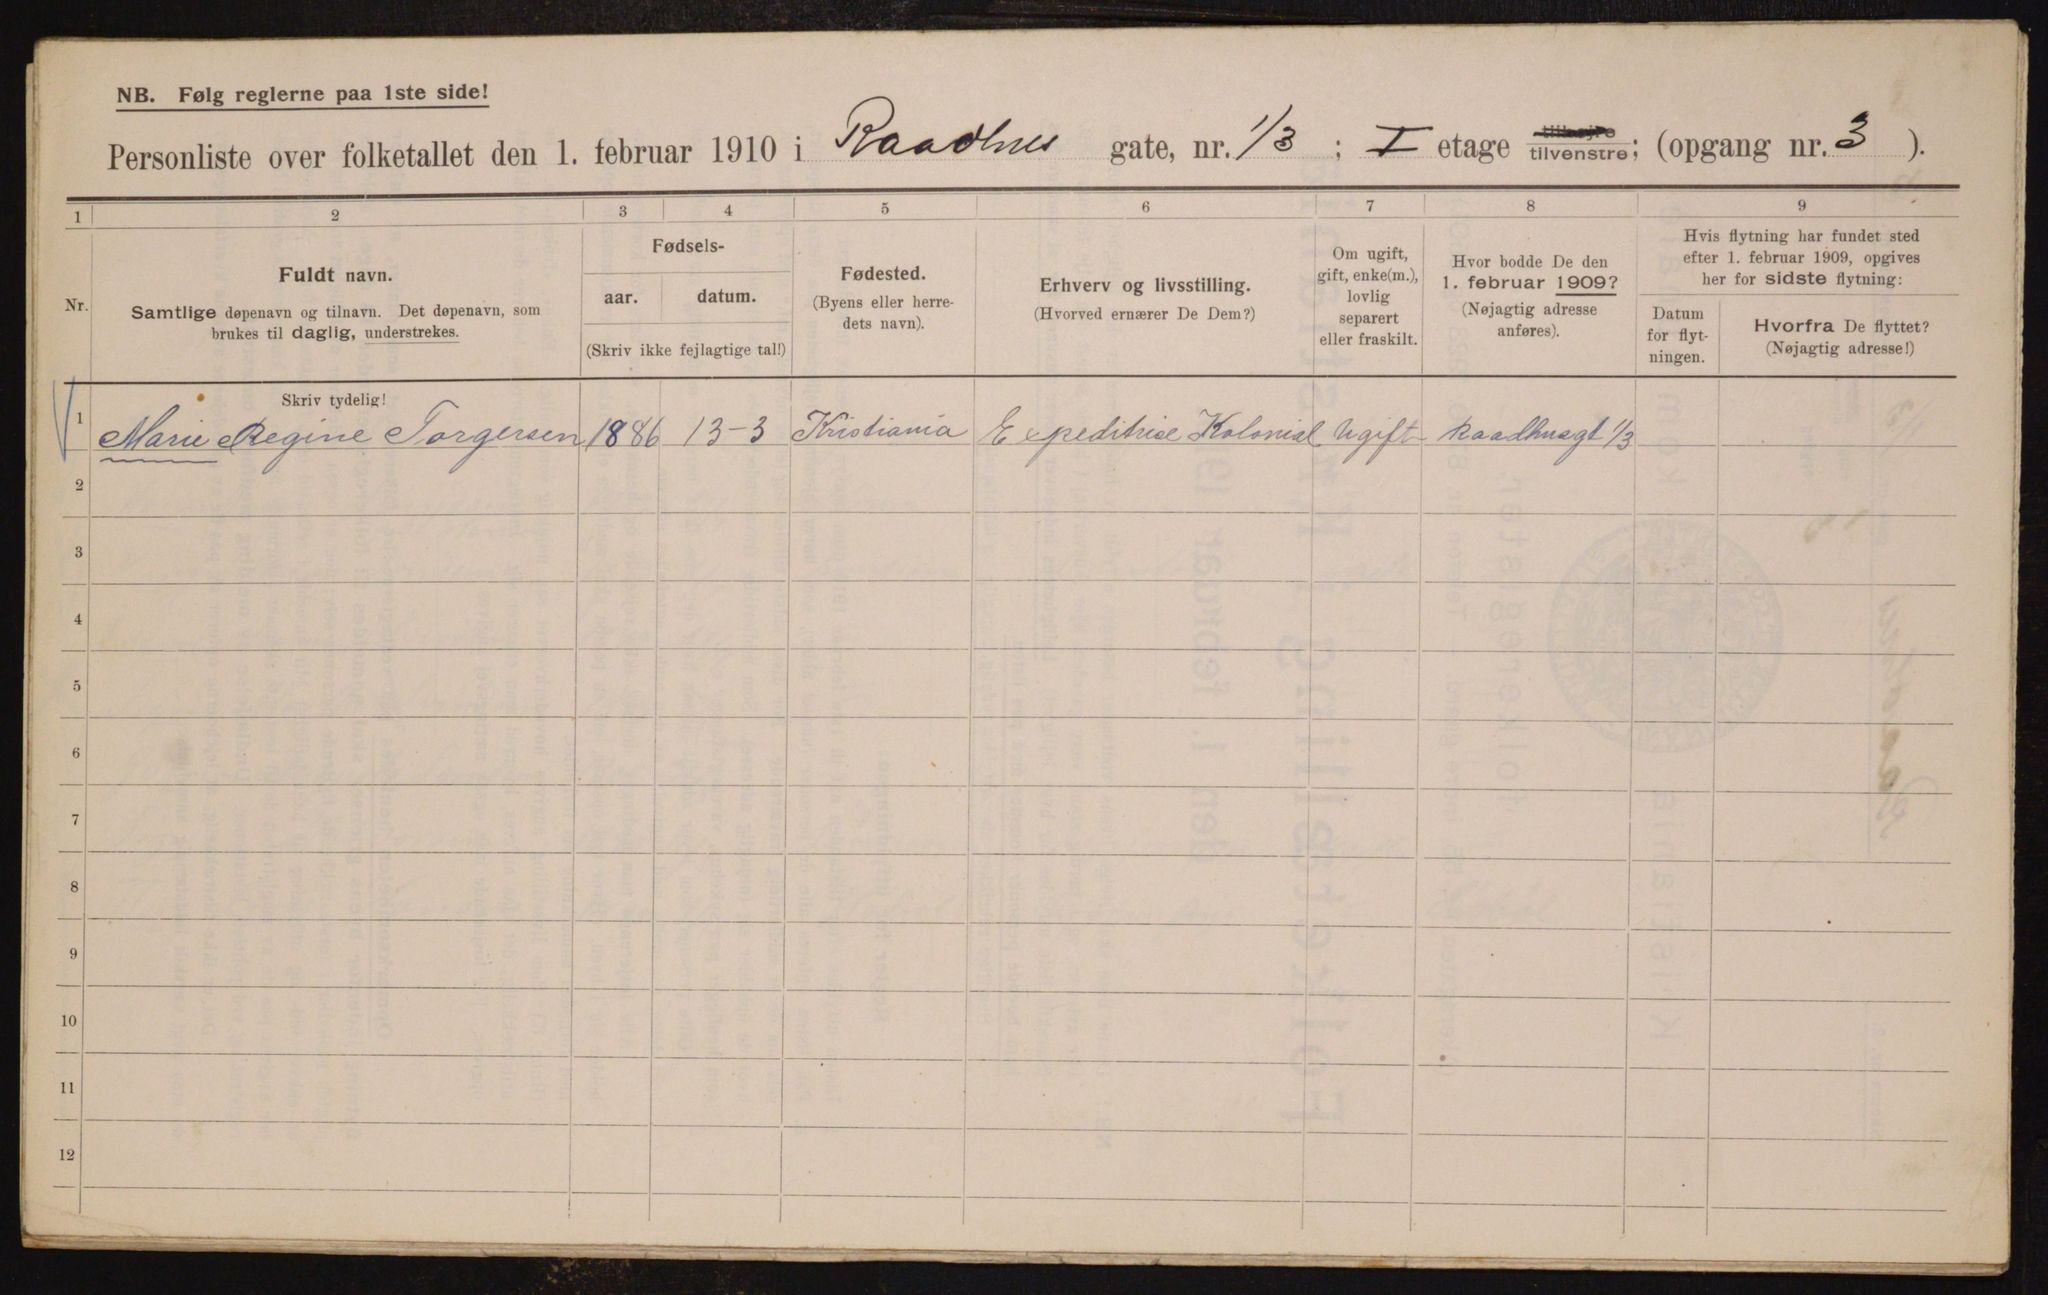 NB. Følg reglerne paa 1ste side!
Personliste over folketallet den 1. februar 1910 i Raadhus gate, nr. 1/3 ; I etage tilhøjre tilvenstre; (opgang nr. 3 ).
1 2 3 4 5 6 7 8 9
Nr.
Fuldt navn.
Samtlige døpenavn og tilnavn. Det døpenavn, som
brukes til daglig, understrekes.
Fødsels-
aar. datum.
(Skriv ikke fejlagtige tal!)
Fødested.
(Byens eller herre-
dets navn).
Erhverv og livsstilling.
(Hvorved ernærer De Dem?)
Om ugift,
gift, enke(m.),
lovlig
separert
eller fraskilt.
Hvor bodde De den
1. februar 1909?
(Nøjagtig adresse
anføres).
Hvis flytning har fundet sted
efter 1. februar 1909, opgives
her for sidste flytning:
Datum
for flyt-
ningen.
Hvorfra De flyttet?
(Nøjagtig adresse!)
Skriv tydelig!
1 Marie Regine Torgersen 1886 13-3 Kristiania Expeditrise Kolonial Ugift Raadhusgt 1/3
2
3
4
5
6
7
8
9
10
11
12